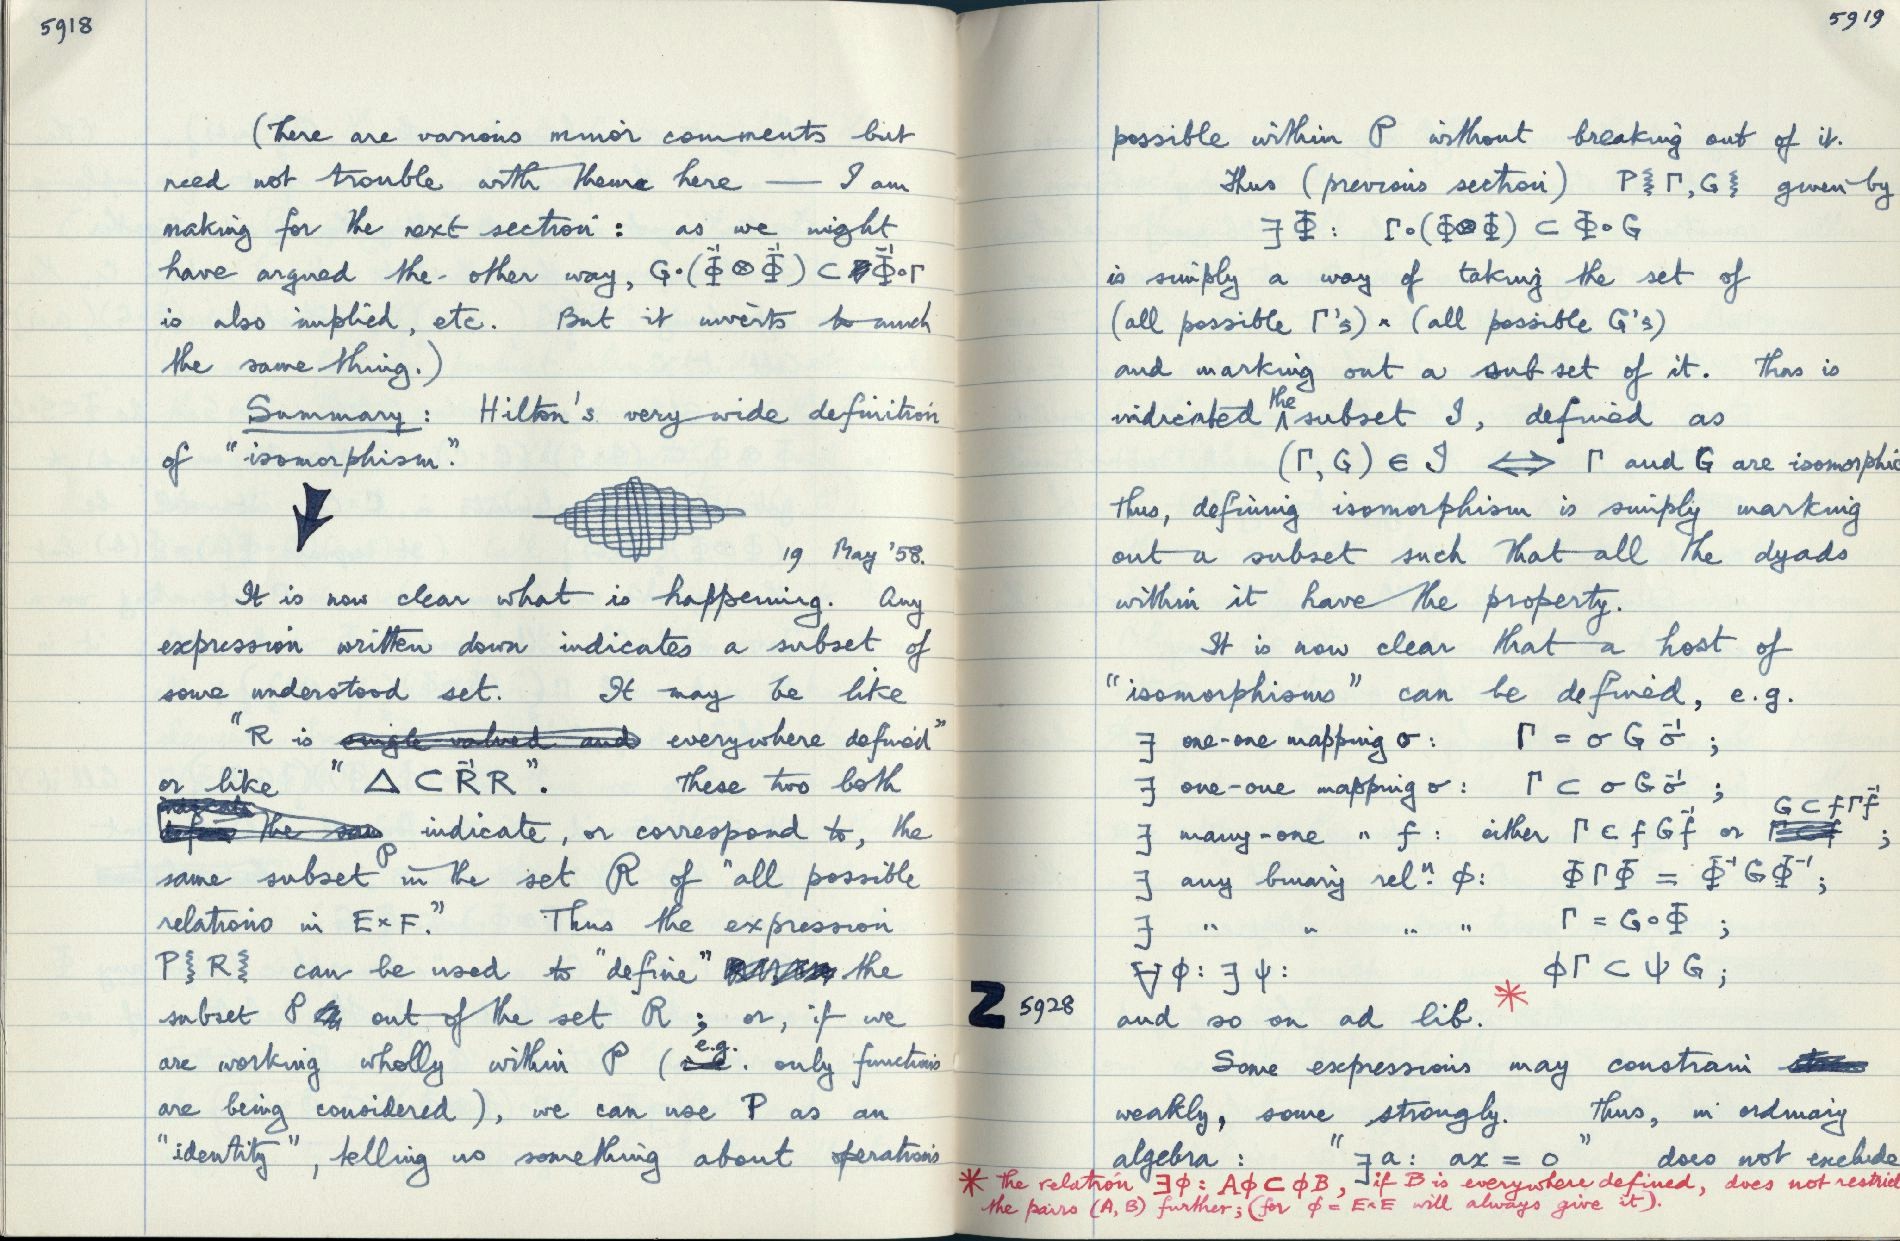 5918
(There are various minor comments but
need not trouble with them here — I am
making for the next section: as we might
have argued the other way, G∘(Φ̄⁻¹⊗Φ̄⁻¹) ⊂ Φ̄⁻¹∘Γ
is also implied, etc. But it inverts to much
the same thing.)
Summary: Hilton's very wide definition
of "isomorphism".
19 May '58.
It is now clear what is happening. Any
expression written down indicates a subset of
some understood set. It may be like
"R is single valued and everywhere defined"
or like "Δ ⊂ R̄⁻¹R". These two both
indicate, or correspond to, the
same subset P in the set R of "all possible
relations in E×F." Thus the expression
P⦚R⦚ can be used to "define" the
subset P out of the set R; or, if we
are working wholly within P (e.g. only functions
are being considered), we can use P as an
"identity", telling us something about operations
5919
possible within P without breaking out of it.
Thus (previous section) P⦚Γ,G⦚ given by
∃Φ: Γ∘(Φ⊗Φ) ⊂ Φ∘G
is simply a way of taking the set of
(all possible Γ's) × (all possible G's)
and marking out a subset of it. Thus is
indicated the subset I, defined as
(Γ, G) ∈ I ⟺ Γ and G are isomorphic
Thus, defining isomorphism is simply marking
out a subset such that all the dyads
within it have the property.
It is now clear that a host of
"isomorphisms" can be defined, e.g.
∃ one-one mapping σ: Γ = σ G σ̄⁻¹;
∃ one-one mapping σ: Γ ⊂ σ G σ̄⁻¹;
∃ many-one " f: either Γ ⊂ f G f̄⁻¹ or G ⊂ f Γ f̄⁻¹;
∃ any binary relⁿ. φ: ΦΓΦ = Φ⁻¹GΦ⁻¹;
∃ " " " " Γ = G∘Φ;
∀φ: ∃ψ: φΓ ⊂ ψG;
Z 5928 and so on ad lib. *
Some expressions may constrain
weakly, some strongly. Thus, in ordinary
algebra: "∃a: ax = 0" does not exclude
* The relation ∃φ: Aφ⊂φB, if B is everywhere defined, does not restrict
the pairs (A, B) further; (for φ = E×E will always give it).